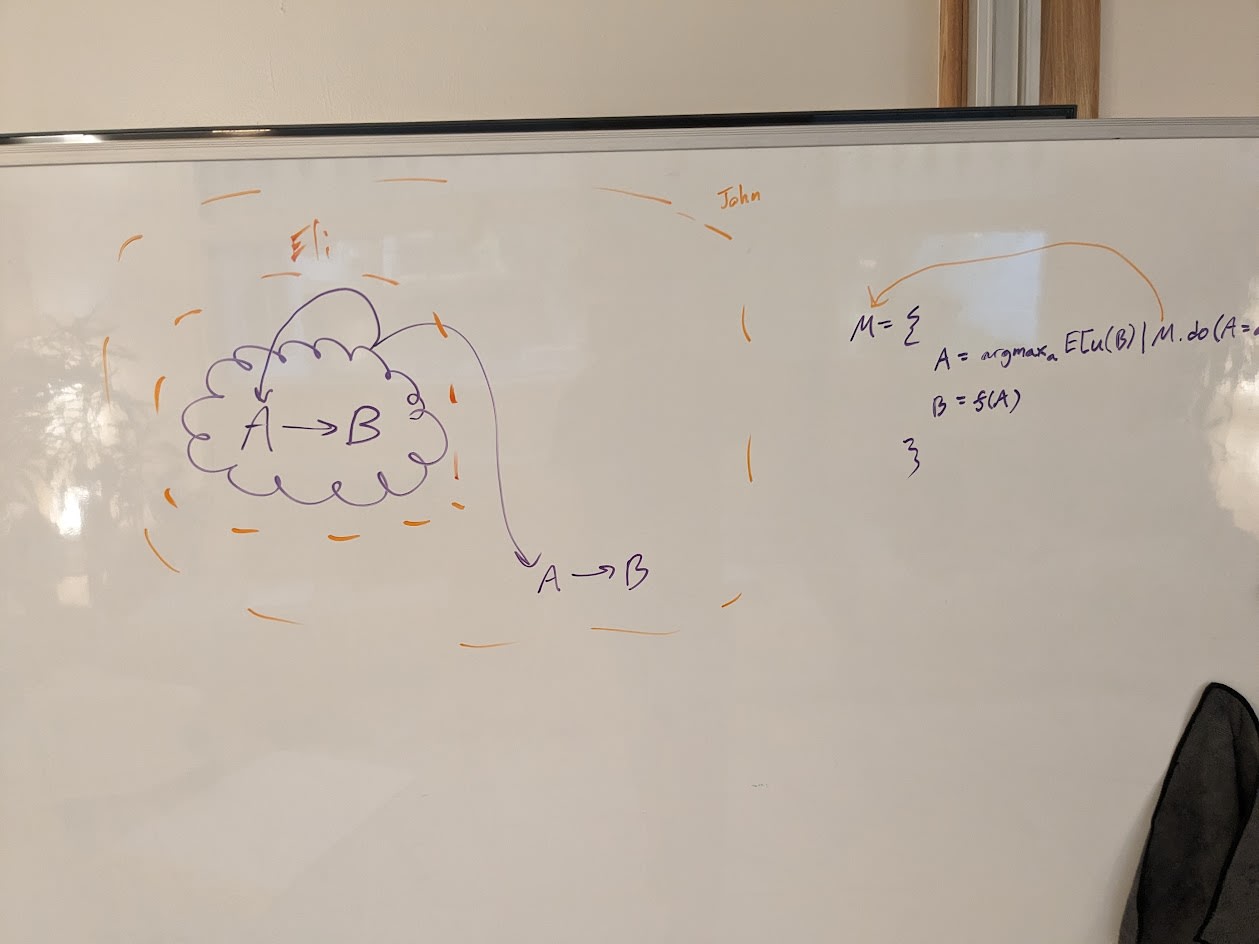 John
Eli
A → B
A → B
M = {
A = argmaxₐ E[u(B) | M.do(A=
B = f(A)
}